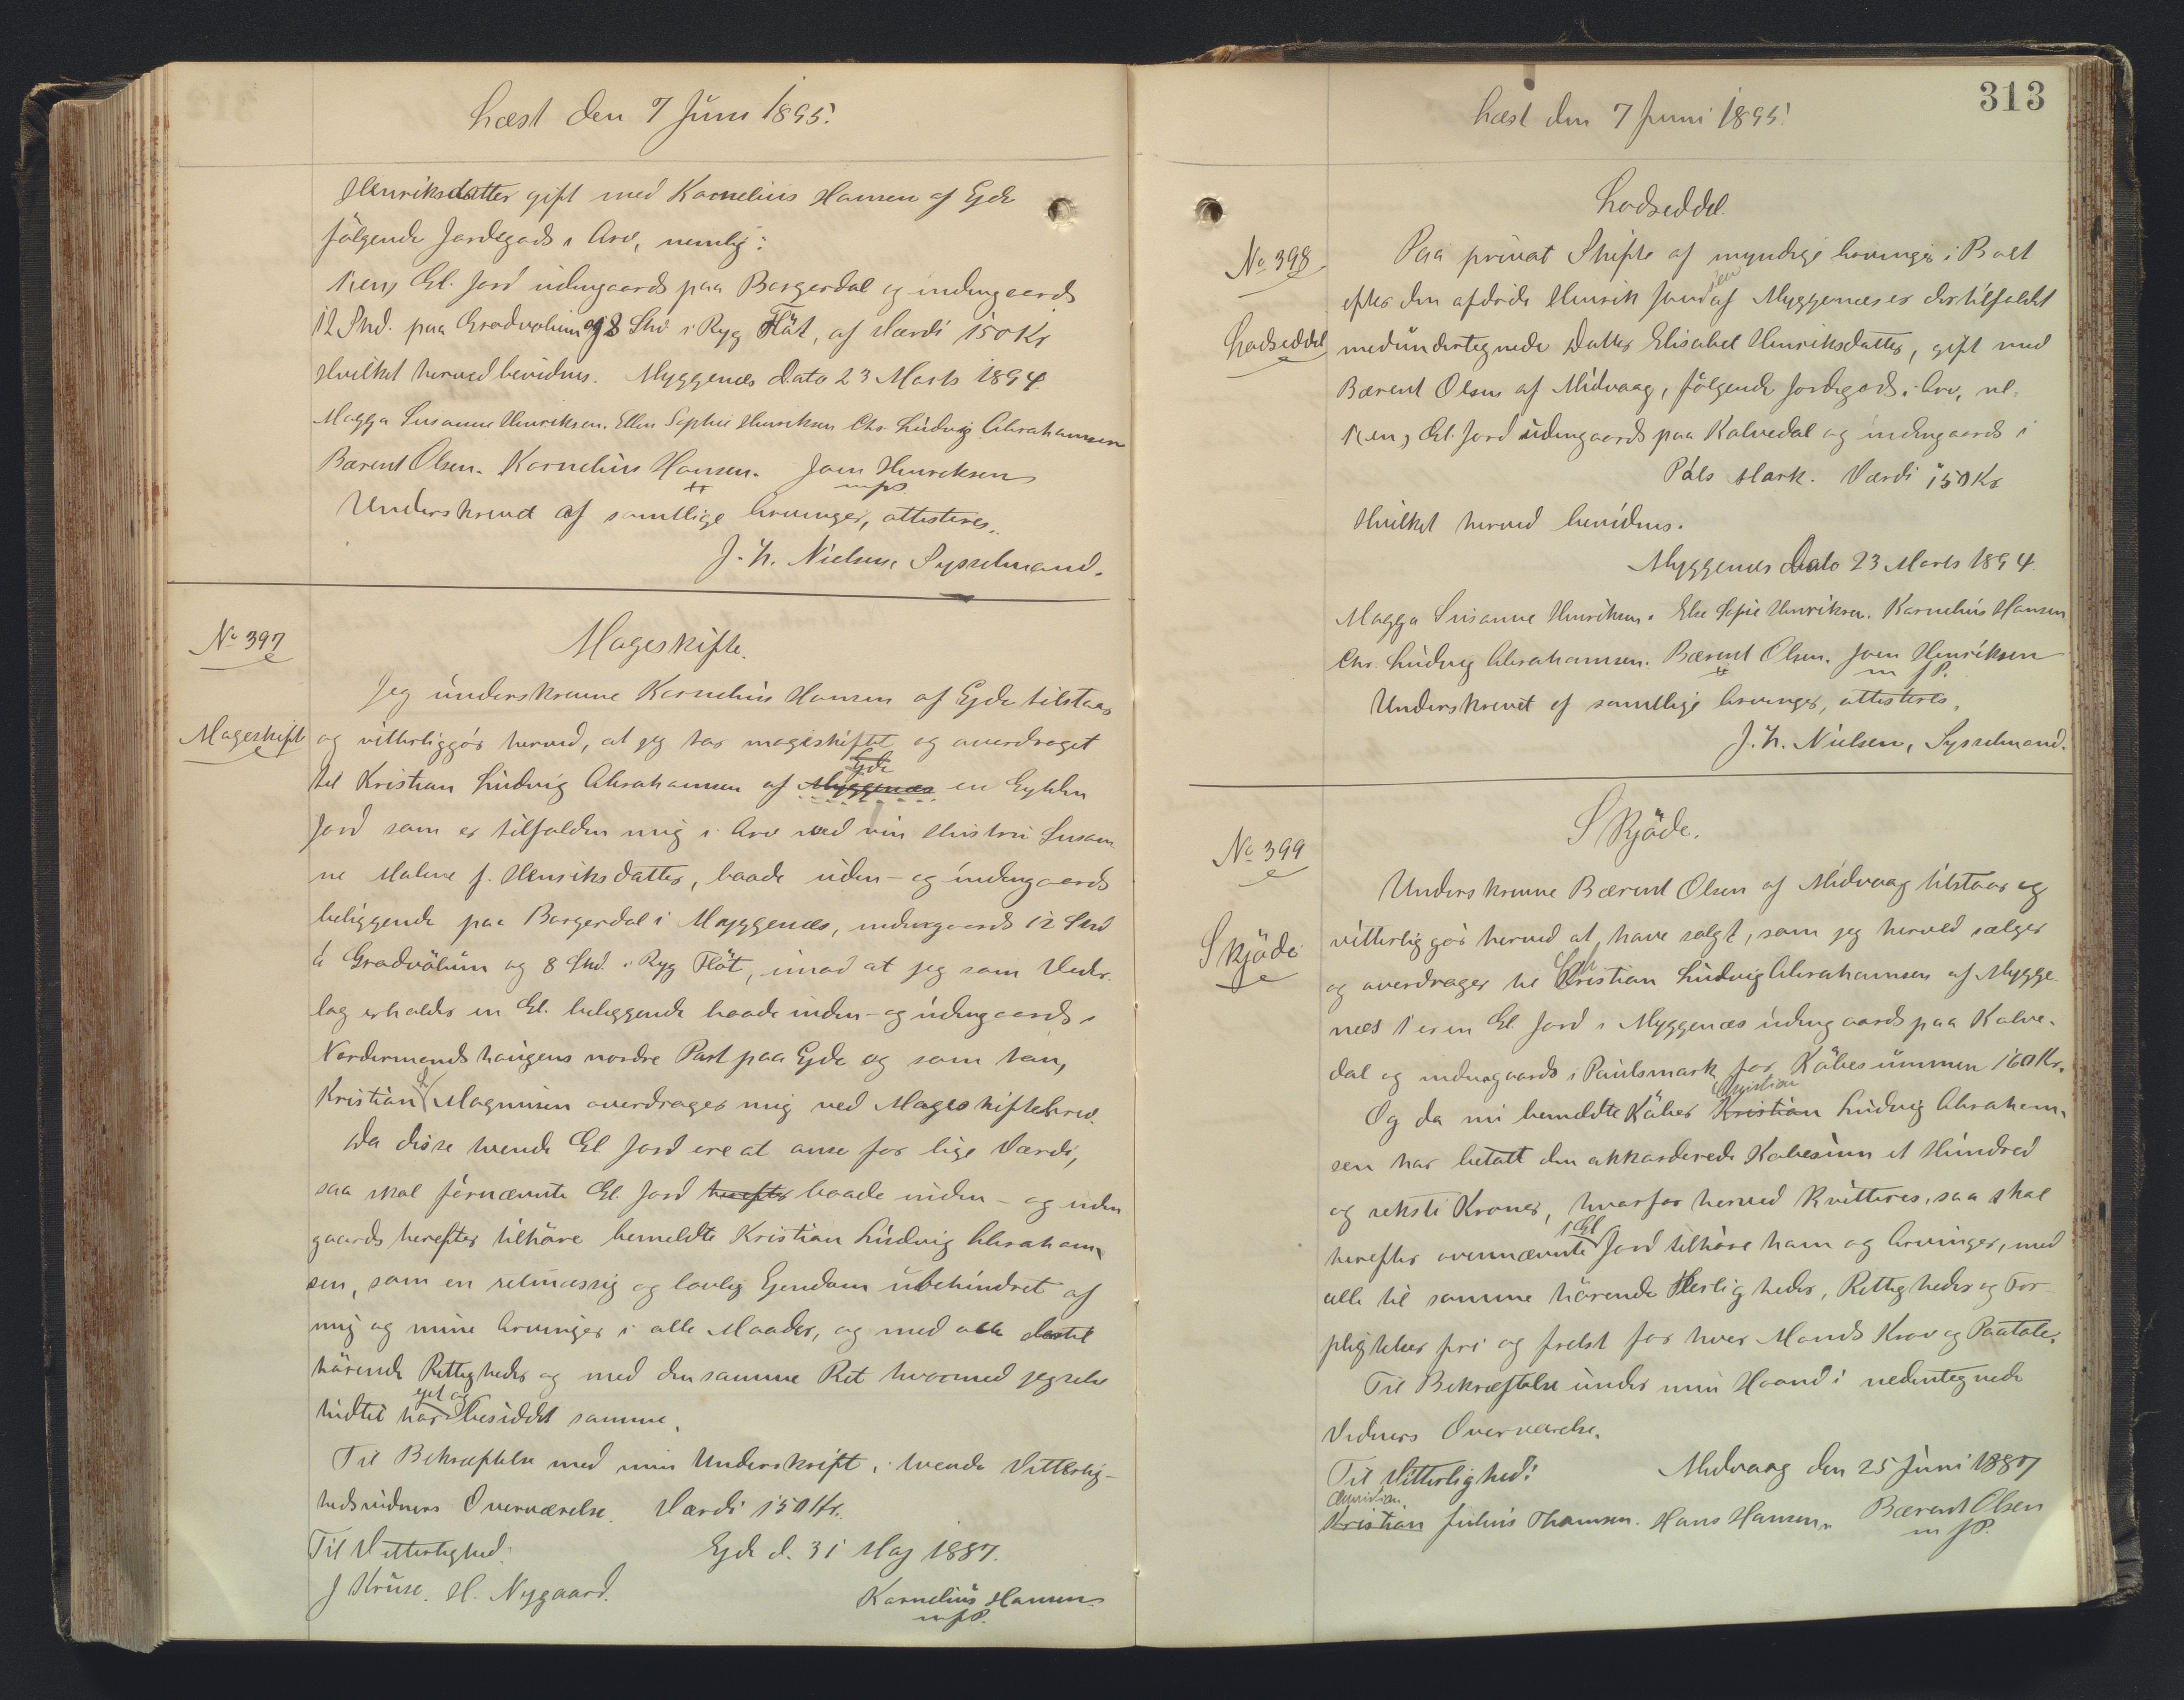 Læst den 7 Juni 1895.
Henriksdatter gift med Kornelius Hansen af Ejde
følgende Jordegods i Arv, nemlig:
1(en) Gl. Jord udengaards paa Borgardal og indengaards
12 Skd. paa Gradvolum og 8 Skd i Ryg Flöt, af Værdi 150 Kr
Hvilket herved bevidnes. Myggenæs Dato 23 Marts 1894.
Magga Susanne Henriksen. Ellen Sophie Henriksen Chr. Ludvig Abrahamsen
Bærent Olsen. Kornelius Hansen. Joen Henriksen
m f P
Underskrevet af samtlige Arvinger, attesteres.
J. H. Nielsen, Sysselmand.
No 397
Mageskifte.
Jeg underskrevne Kornelius Hansen af Ejde tilstaar
Mageskifte
og vitterliggör herved, at jeg har mageskiftet og overdraget
Ejde
til Kristian Ludvig Abrahamsen af Myggenæs en Gylden
Jord som er tilfalden mig i Arv med min Hustru Susan
ne Malene f. Henriksdatter, baade uden- og indengaards
beliggende paa Borgardal i Myggenæs, indengaards 12 Skd
á Gradvölum og 8 Skd. i Ryg Flöt, imod at jeg som Veder
lag erholder en Gl. beliggende baade inden- og udengaards i
Nordermandshaugens nordre Part paa Ejde og som han,
Kristian Magnusen overdrager mig ved Mageskiftebrev.
Da disse tvende Gl Jord ere at anse for lige Værdi,
saa skal förnævnte Gl. Jord herefter baade inden- og uden
gaards herefter tilhöre bemeldte Kristian Ludvig Abraham
sen, som en retmæssig og lovlig Ejendom ubehindret af
mig og mine Arvinger i alle Maader, og med alle dertil
hörende Rettigheder og med den samme Ret hvormed jeg selv
ejet og
hidtil har besiddet samme.
Til Bekræftelse med min Underskrift, i tvende Vitterlig-
hedsvidners Overværelse. Værdi 150 Kr.
Til Vitterlighed: Ejde d. 31 Maj 1887.
J Kruse. H. Nygaard. Kornelius Hansen
m f P.
313
Læst den 7 Juni 1895.
Lodseddel.
No 398
Paa privat Skifte af myndige Arvinger i Boet
sen
efter den afdöde Henrik Joen af Myggenæs er der tilfaldet
Lodseddel
medundertegnede Datter Elisabet Henriksdatter, gift med
Bærent Olsen af Midvaag, følgende Jordegods i Arv, nl.
1(en) Gl. Jord udengaards paa Kalvedal og indengaards i
Páls Mark. Værdi 150 Kr
Hvilket herved bevidnes.
Myggenæs Dato 23 Marts 1894.
Magga Susanne Henriksen. Else Sofie Henriksen. Kornelius Hansen
Chr. Ludvig Abrahamsen. Bærent Olsen. Joen Henriksen
m f P.
Underskrevet af samtlige Arvinger, attesteres,
J. H. Nielsen, Sysselmand.
No 399
Skjöde.
Underskrevne Bærent Olsen af Midvaag tilstaar og
Skjöde
vitterlig gör herved at have solgt, som jeg herved sælger
og overdrager til Kristian Ludvig Abrahamsen af Mygge
næs 1 er en Gl. Jord i Myggenæs udengaards paa Kalve-
dal og indengaards i Paulsmark for Köbesummen 160 Kr.
Christian
Og da nu bemeldte Köber Kristian Ludvig Abraham-
sen har betalt den akkorderede Kobesum et Hundred
og seksti Kroner, hvorfor herved kvitteres, saa skal
1 Gl
herefter ovennævnte Jord tilhöre ham og Arvinger, med
alle til samme hörende Herligheder, Rettigheder og For
pligtelser fri og frelst for hver Mands Krav og Paatale.
Til Bekræftelse under min Haand i nedentegnede
Vidners Overværelse.
Til Vitterlighed: Midvaag den 25 Juni 1887
Christian
Kristian Julius Thomsen. Hans Hansen. Bærent Olsen
m f P.